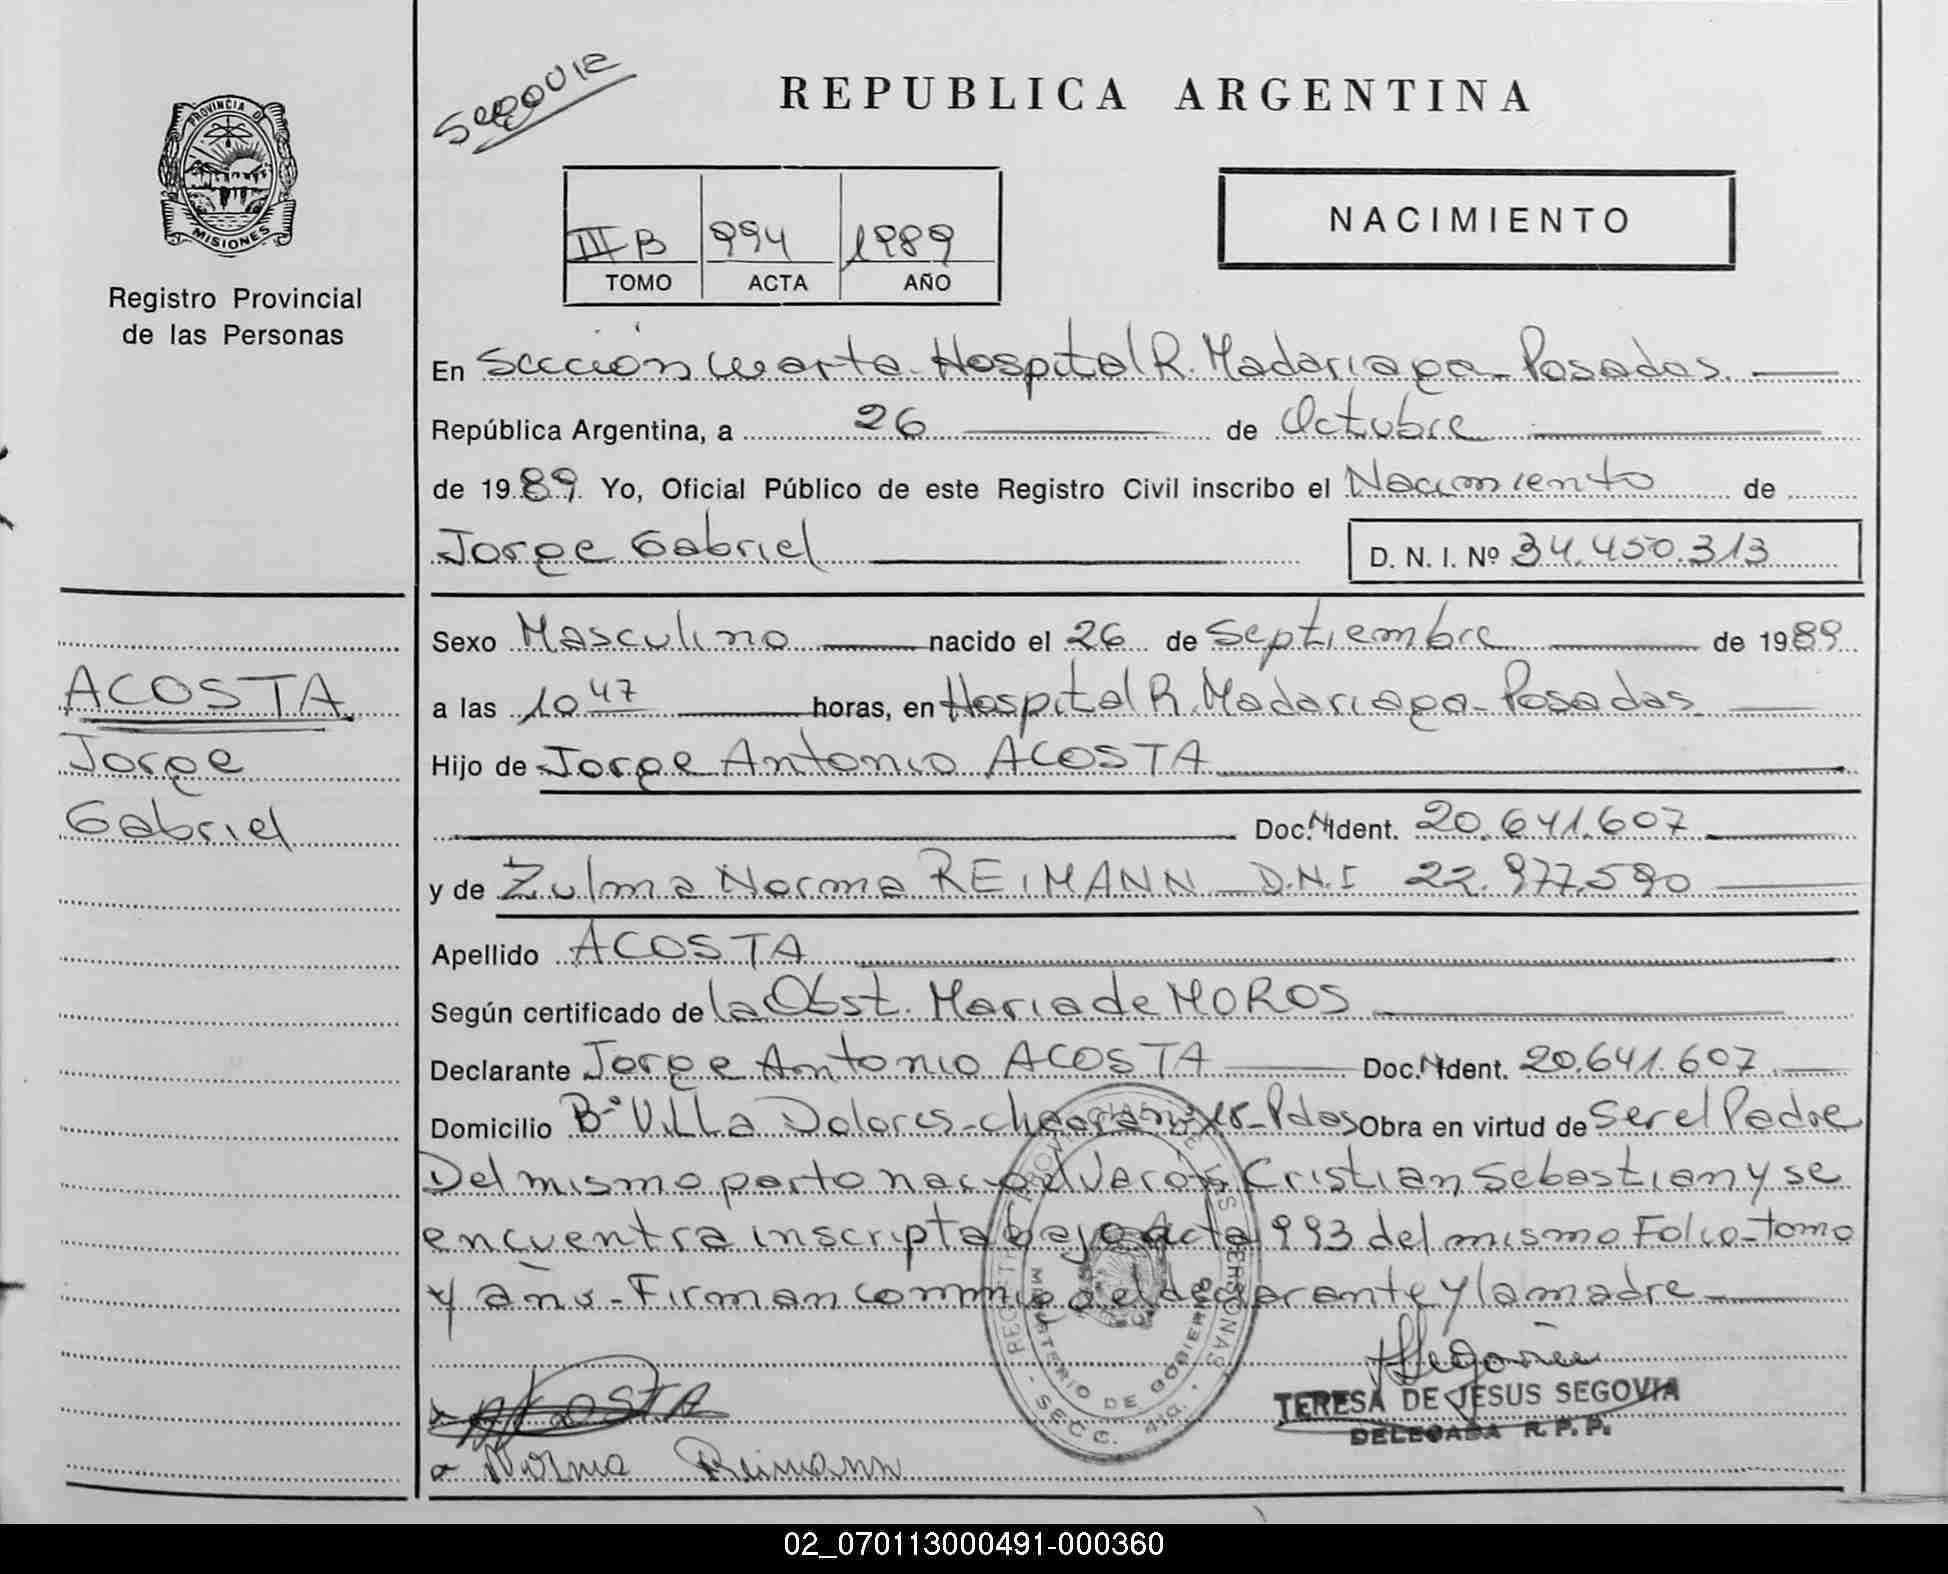 Segovia
REPUBLICA ARGENTINA
PROVINCIA DE
MISIONES
Registro Provincial
de las Personas
III B 994 1989
TOMO ACTA AÑO
NACIMIENTO
En Sección Cuarta - Hospital R. Madariaga - Posadas.
República Argentina, a 26 de Octubre
de 1989 Yo, Oficial Público de este Registro Civil inscribo el Nacimiento de
Jorge Gabriel D. N. I. Nº 34.450.313
Sexo Masculino nacido el 26 de Septiembre de 1989
ACOSTA
a las 10 47 horas, en Hospital R. Madariaga - Posadas
Jorge
Hijo de Jorge Antonio ACOSTA
Gabriel
Doc. N Ident. 20.641.607
y de Zulma Norma REIMANN D.N.I 22.977.590
Apellido ACOSTA
Según certificado de la Obst. Maria de MOROS
Declarante Jorge Antonio ACOSTA Doc. N Ident. 20.641.607
Domicilio Bº Villa Dolores - Pdas Obra en virtud de Ser el Padre
Del mismo parto nacio el varon Cristian Sebastian y se
encuentra inscripta bajo acta 993 del mismo Folio - tomo
y año - Firman conmigo el declarante y la madre
REGISTRO PROVINCIAL DE LAS PERSONAS
MINISTERIO DE GOBIERNO
- SECC. 4ta. -
Segovia
TERESA DE JESUS SEGOVIA
DELEGADA R. P. P.
ACOSTA
Norma Reimann
02_070113000491-000360